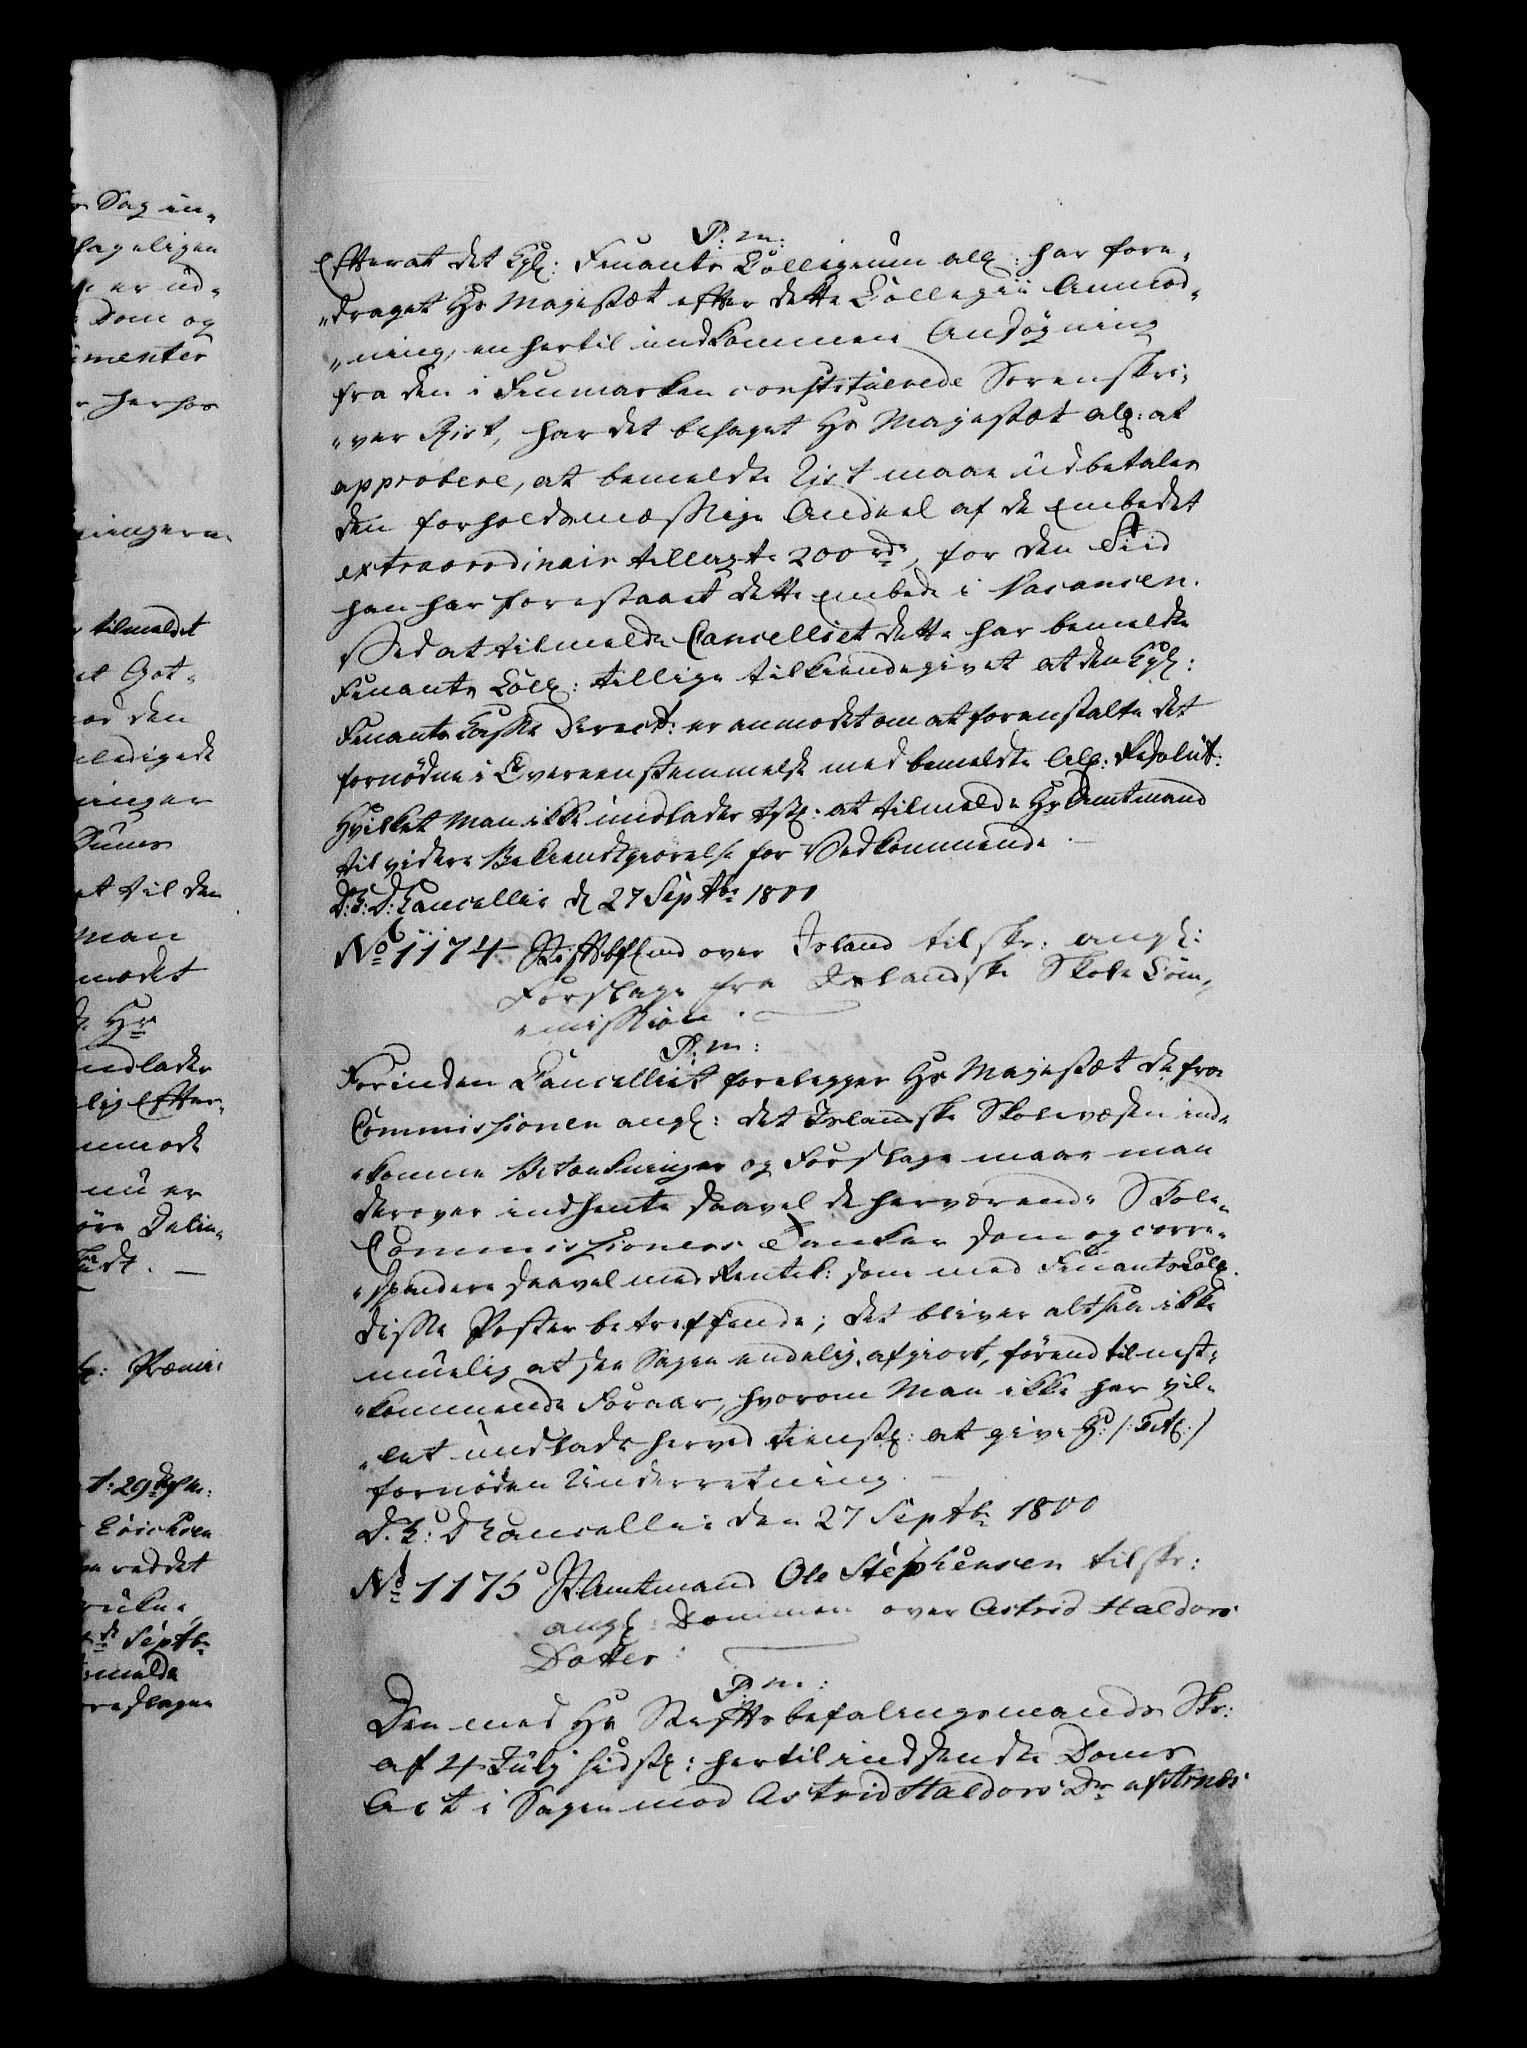 P: m:
Efterat det Kgl: Finants Collegium all: har fore-
„draget Hs Majestæt efter dette Collegii Anmod-
„ning, en hertil indkommen Ansøgning
fra den i Finmarken constituerede Sorenskri-
„ver Rist, har det behaget Hs Majestæt all: at
approbere, at bemeldte Rist maae udbetales
den forholdsmæssige Andeel af de Embedet
extraordinair tillagte 200 rdr, for den Tiid
han har forestaaet dette Embede i Vacancen.
Ved at tilmelde Cancelliet dette har bemeldte
Finants Coll: tillige tilkiendegivet at den Kgl:
Finants Casse Direct: er anmodet om at foranstalte det
fornødne i Overeensstemmelse med bemeldte All: Resolut:
Hvilket Man ikke undlader tstl: at tilmelde Hr Amtmand
til videre Bekiendtgiørelse for Vedkommende.
D: K: D: Cancellie d 27 Septbr 1800
No 1174 Stiftbfmd over Island tilskr: angl:
Forslage fra Islandske Skole Com-
„mission.
P: m:
Forinden Cancelliet forelægger Hs Majestæt de fra
Commissionen angl: det Islandske Skolevæsen ind-
„komne Betænkninger og Forslage maae man
derover indhente saavel de herværende Skole-
Commissioners Tanker som og corre-
„spondere saavel med Rentek: som med Finants Coll.
disse Poster betreffende; det bliver altsaa ikke
muelig at see Sagen endelig afgiort, førend til næst-
„kommende Foraar, hvorom Man ikke har vil-
„let undlade herved tienstl: at give H: /: Titl: /
fornøden Underretning.
D. K: D Cancellie den 27 Septbr 1800
No 1175 Amtmand Ole Stephensen tilskr:
angl: Dommen over Astrid Haldors
Datter:
P: m:
Den med Hr Stiftsbefalingsmands Skr:
af 4 Julij sidstl: hertil indsendte Doms
Act i Sagen mod Astrid Haldors Dr af Arnes